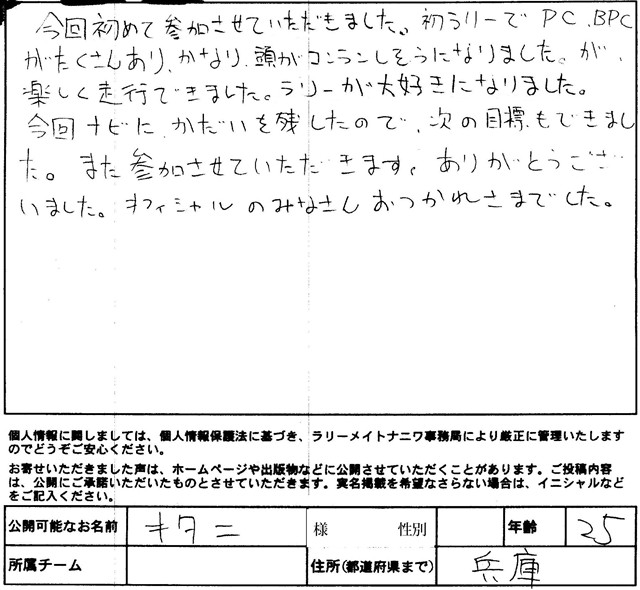 今回初めて参加させていただきました。初ラリーでPC、BPC
がたくさんあり、かなり、頭がコンランしそうになりました。が、
楽しく走行できました。ラリーが大好きになりました。
今回ナビに、かだいを残したので、次の目標もできまし
た。また参加させていただきます。ありがとうござ
いました。オフィシャルのみなさんおつかれさまでした。
個人情報に関しましては、個人情報保護法に基づき、ラリーメイトナニワ事務局により厳正に管理いたします
のでどうぞご安心ください。
お寄せいただきました声は、ホームページや出版物などに公開させていただくことがあります。ご投稿内容
は、公開にご承諾いただいたものとさせていただきます。実名掲載を希望なさらない場合は、イニシャルなど
をご記入ください。
公開可能なお名前 キタニ 様 性別 年齢 25
所属チーム 住所(都道府県まで) 兵庫